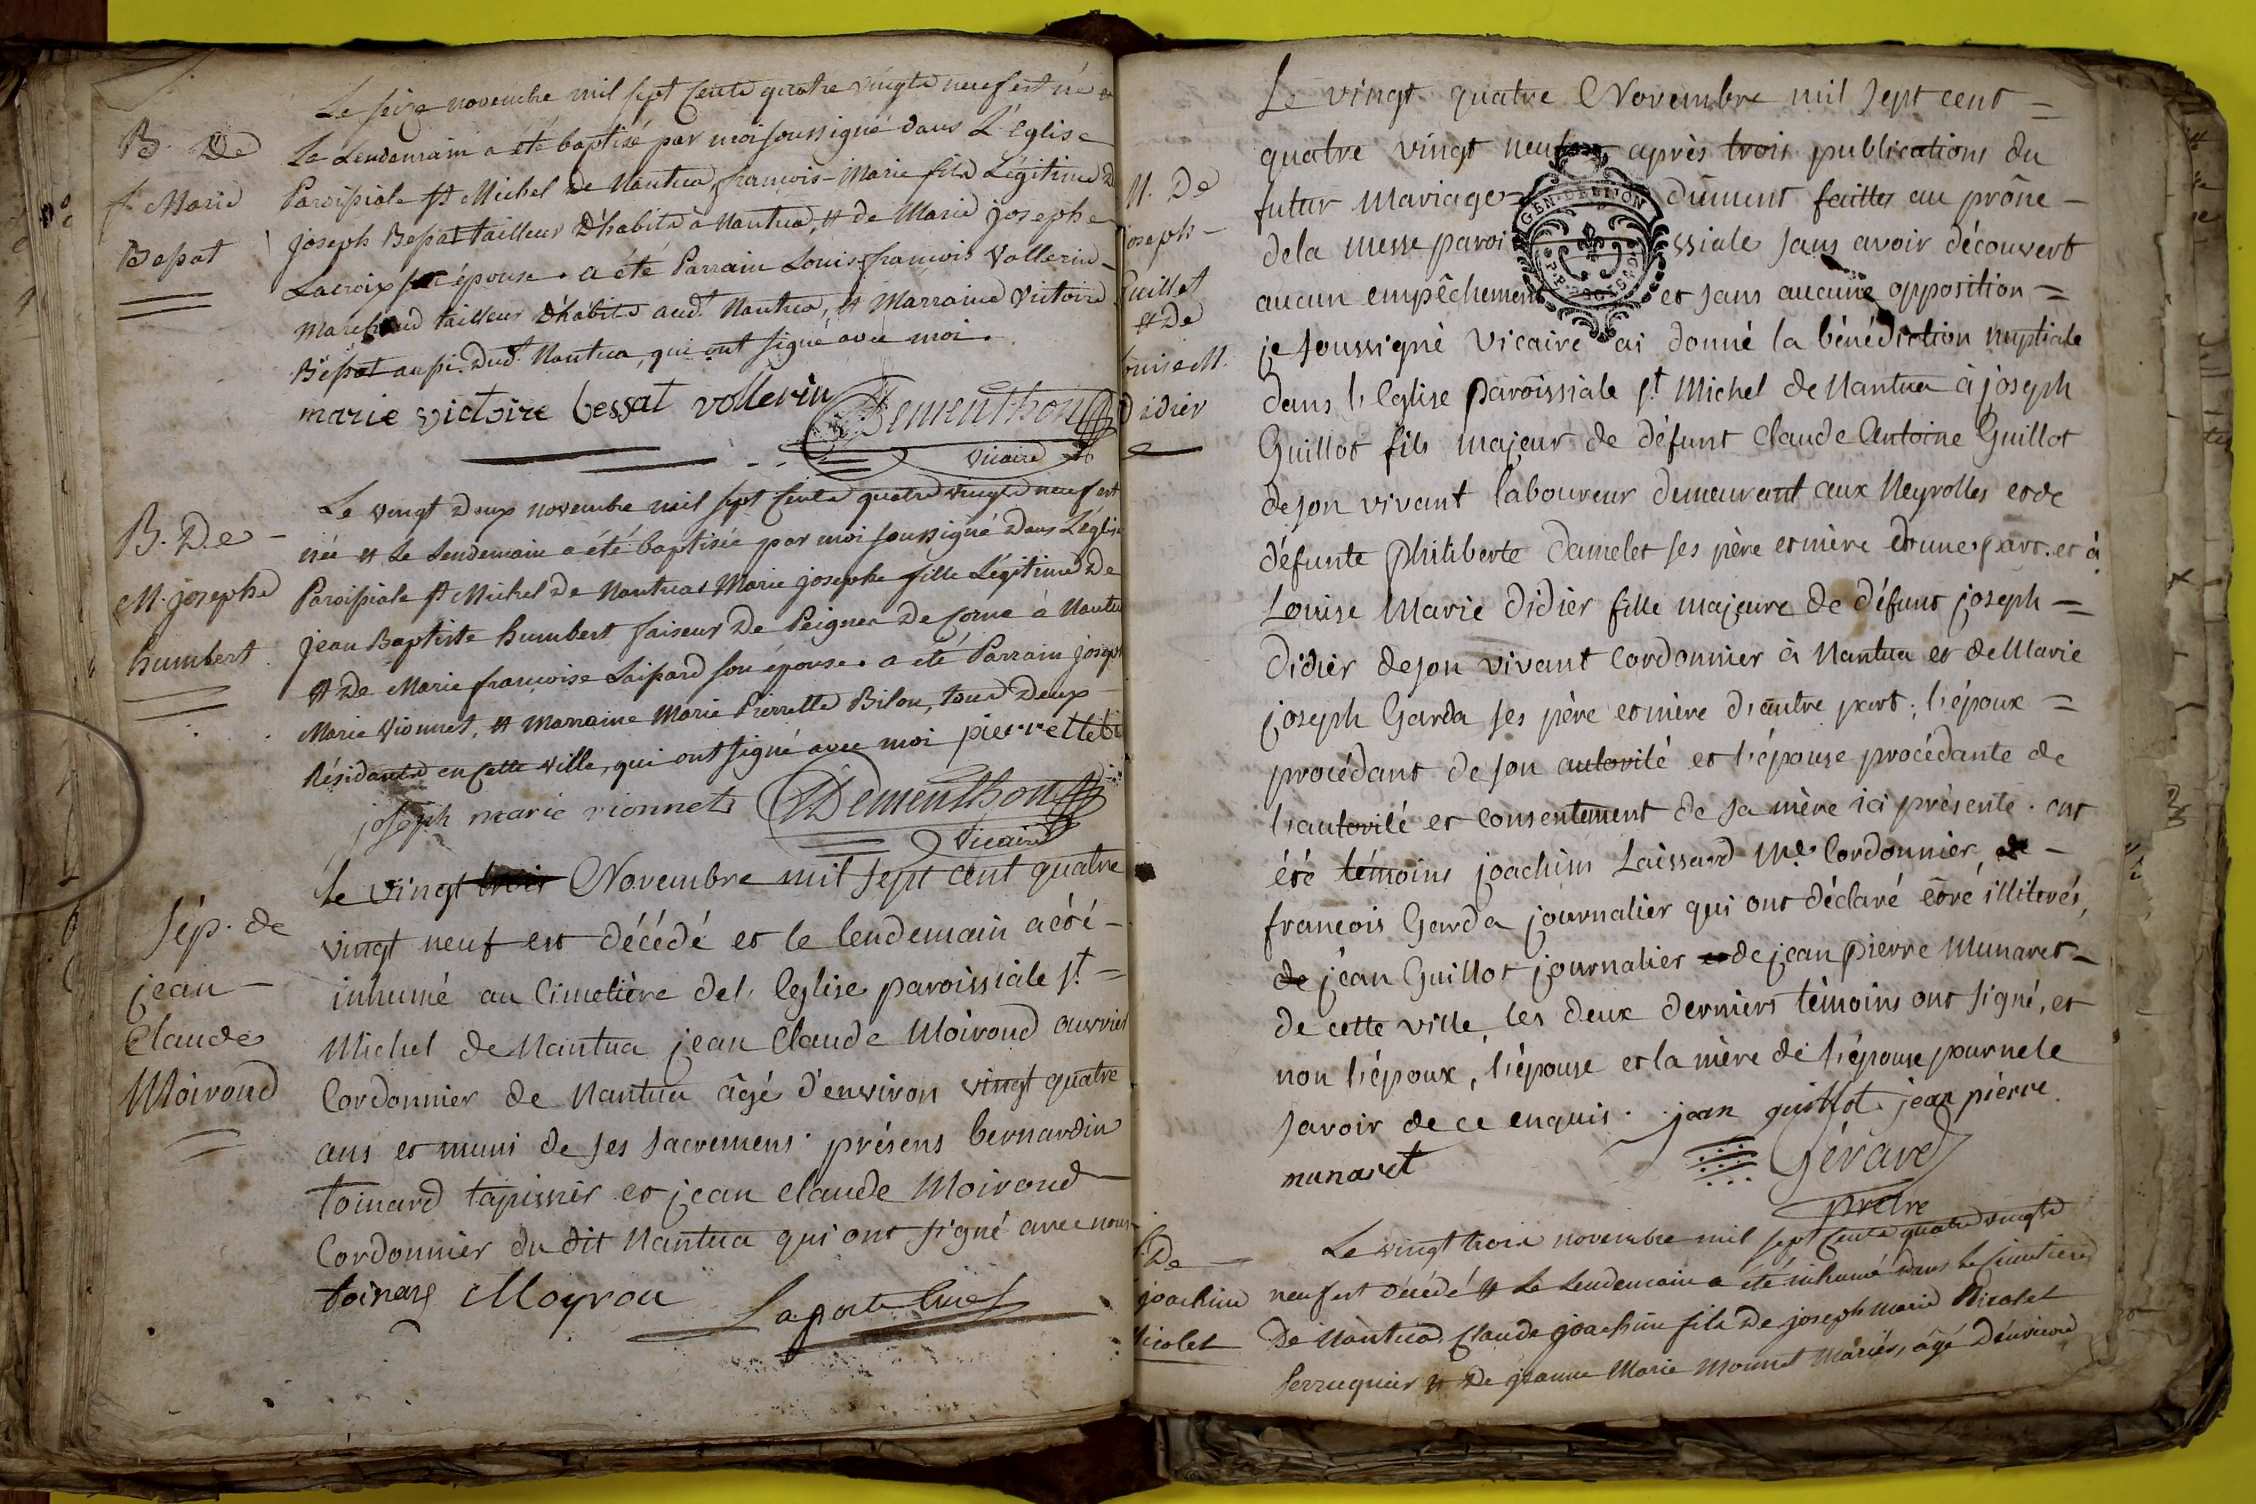 B. De
f. Marie
Bessat
Le seize novembre mil sept cents quatre vingts neuf est né et
Le Lendemain a été baptisé par moi soussigné dans L'église
Paroissiale St Michel de Nantua, françois-Marie fils Légitime de
joseph Bessat tailleur D'habits à Nantua, et de Marie josephe
Lacroix son épouse. a été Parrain Louis françois Vollerin
Marchand tailleur D'habits aud.t Nantua, et Marraine Victoire
Bessat aussi dud.t Nantua, qui ont signé avec moi.
marie victoire bessat vollerin Dementhon
vicaire
B. De
M. josephe
humbert
Le vingt deux novembre mil sept cents quatre vingts neuf est
née et Le Lendemain a été baptisée par moi soussigné dans L'église
Paroissiale St Michel de Nantua Marie josephe fille Légitime de
jean Baptiste humbert faiseur de Peignes de Corne à Nantua
et de Marie françoise Laissard son épouse. a été Parrain joseph
Marie Vionnet, et Marraine Marie Pierrette Bilon, tous deux
Résidants en cette ville, qui ont signé avec moi pierrette bi
joseph marie vionnet Dementhon
vicaire
Sép. de
jean
Claude
Moiroud
Le vingt trois Novembre mil sept cent quatre
vingt neuf est décédé et le lendemain a été
inhumé au Cimetière de l'Eglise paroissiale St
Michel de Nantua jean Claude Moiroud ouvrier
Cordonnier de Nantua âgé d'environ vingt quatre
ans et muni de ses sacremens. présens bernardin
toinard tapissier et jean claude Moiroud
Cordonnier du dit Nantua qui ont signé avec nous
toinard Moyrou Laporte Curé
M. De
joseph
Guillot
et De
Louise M.
Didier
Le vingt quatre Novembre mil sept cent
quatre vingt neuf après trois publications du
futur mariage dûment faittes au prône
de la messe paroissiale sans avoir découvert
aucun empêchement et sans aucune opposition
je soussigné Vicaire ai donné la bénédiction nuptiale
dans l'Eglise paroissiale St Michel de Nantua à joseph
Guillot fils majeur de défunt Claude Antoine Guillot
de son vivant laboureur demeurant aux Neyrolles et de
défunte philiberte Damelet ses père et mère d'une part. et à
Louise Marie Didier fille majeure de défunt joseph
Didier de son vivant Cordonnier à Nantua et de Marie
joseph Garda ses père et mère d'autre part; l'époux
procédant de son autorité et l'épouse procédante de
l'autorité et consentement de sa mère ici présente. ont
été témoins joachim Laissard Me. Cordonnier, de
francois Garda journalier qui ont déclaré être illiterés,
de jean Guillot journalier et de jean pierre Munaret
de cette ville, les deux derniers témoins ont signé, et
non l'époux, l'épouse et la mère de l'épouse pour ne le
savoir de ce enquis. jean guillot jean pierre
munaret Gérard
prêtre
De
joachim
Nicolet
Le vingt trois novembre mil sept cents quatre vingts
neuf est décédé et Le Lendemain a été inhumé dans Le Cimetière
De Nantua, Claude joachim fils de joseph marie Nicolet
Perruquier et de jeanne Marie Monnet Mariés, âgé d'environ
GEN. DE LION